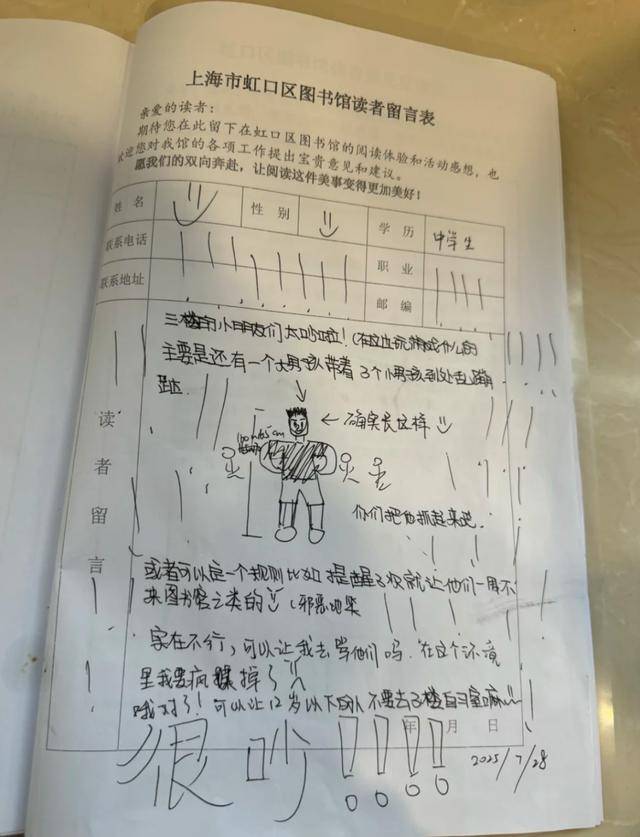 上海市虹口区图书馆读者留言表
亲爱的读者：
期待您在此留下在虹口区图书馆的阅读体验和活动感想，也
欢迎您对我馆的各项工作提出宝贵意见和建议。
愿我们的双向奔赴，让阅读这件美事变得更加美好！
姓名 性别 学历 中学生
联系电话 职业
联系地址 邮编
读者留言
三楼的小朋友们太吵啦！（在这边玩游戏什么的
主要是还有一个大男孩带着3个小男孩到处乱蹦
跶
← 确实长这样
你们把他抓起来吧.
或者可以定一个规则比如提醒3次就让他们一周不
来图书馆之类的（邪恶地笑
实在不行，可以让我去举他们吗.在这个环境
里我要疯掉了
哦对了！可以让12岁以下的人不要去3楼自习室嘛
年 月 日
很吵！！！！
2025/7/28